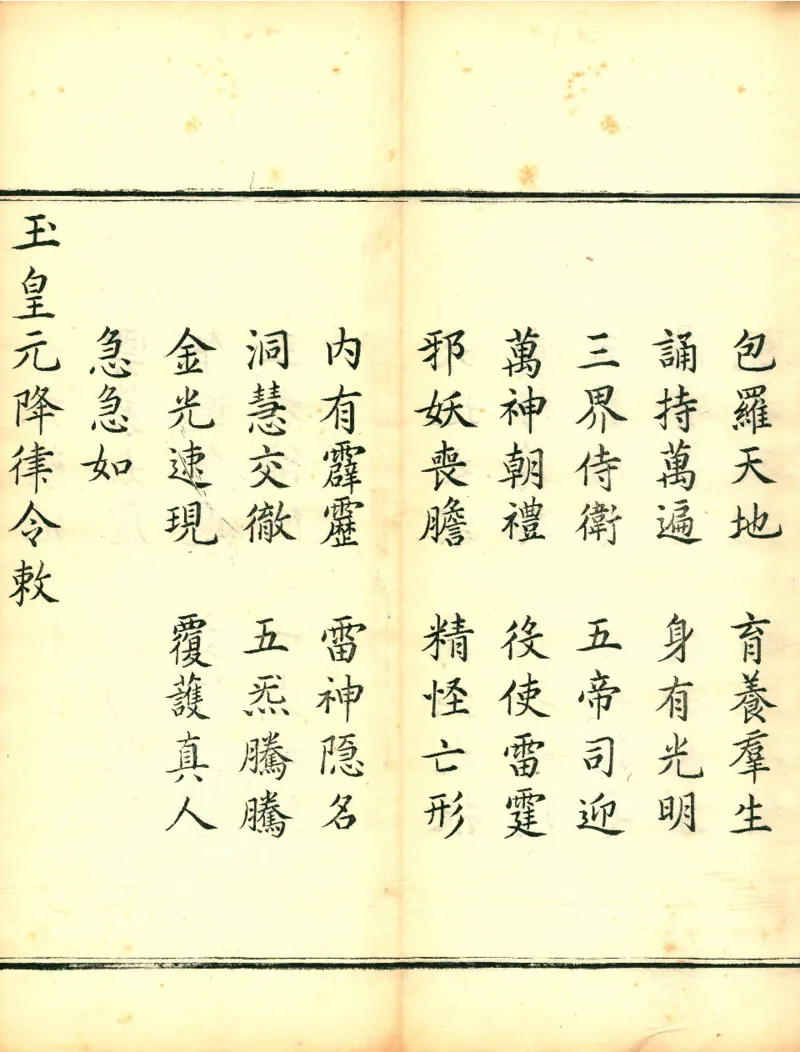 包羅天地　育養羣生
誦持萬遍　身有光明
三界侍衛　五帝司迎
萬神朝禮　役使雷霆
邪妖喪膽　精怪亡形
内有霹靂　雷神隐名
洞慧交徹　五炁騰騰
金光速現　覆護真人
急急如
玉皇元降律令敕